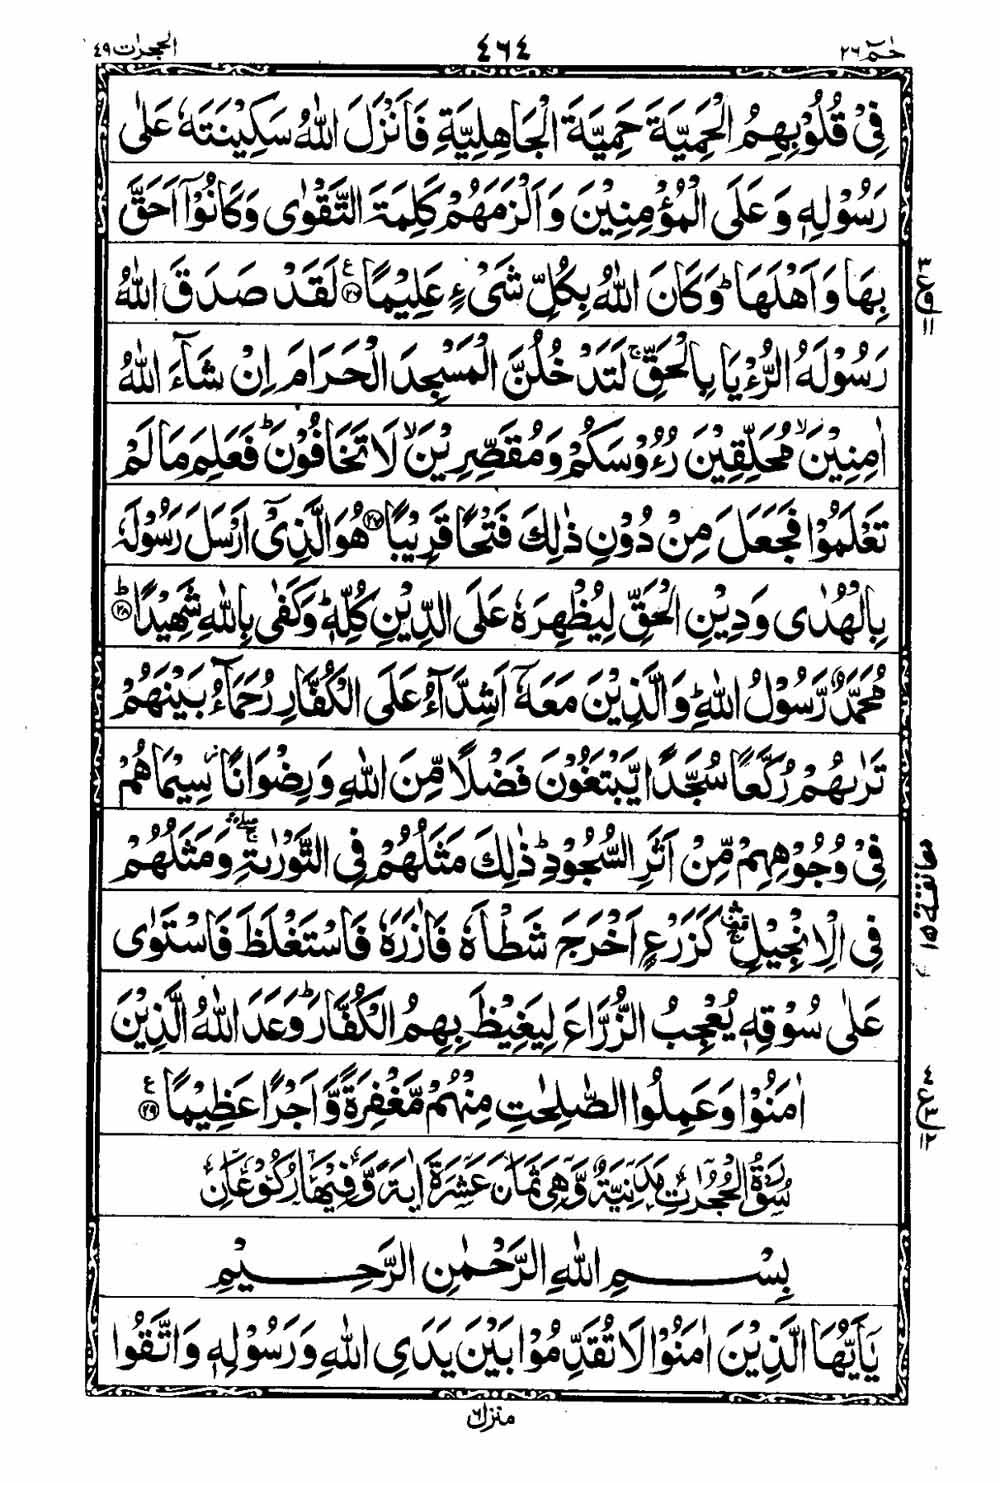 الحجرات ٤٩ ٤٦٤ حٰمٓ ٢٦
فِیْ قُلُوْبِهِمُ الْحَمِیَّةَ حَمِیَّةَ الْجَاهِلِیَّةِ فَاَنْزَلَ اللّٰهُ سَكِیْنَتَهٗ عَلٰی
رَسُوْلِهٖ وَ عَلَی الْمُؤْمِنِیْنَ وَ اَلْزَمَهُمْ كَلِمَةَ التَّقْوٰی وَ كَانُوْۤا اَحَقَّ
بِهَا وَ اَهْلَهَا ؕ وَ كَانَ اللّٰهُ بِكُلِّ شَیْءٍ عَلِیْمًا ۟ع ٢٦ لَقَدْ صَدَقَ اللّٰهُ
رَسُوْلَهُ الرُّءْیَا بِالْحَقِّ ۚ لَتَدْخُلُنَّ الْمَسْجِدَ الْحَرَامَ اِنْ شَآءَ اللّٰهُ
اٰمِنِیْنَ ۙ مُحَلِّقِیْنَ رُءُوْسَكُمْ وَ مُقَصِّرِیْنَ ۙ لَا تَخَافُوْنَ ؕ فَعَلِمَ مَا لَمْ
تَعْلَمُوْا فَجَعَلَ مِنْ دُوْنِ ذٰلِكَ فَتْحًا قَرِیْبًا ٢٧ هُوَ الَّذِیْۤ اَرْسَلَ رَسُوْلَهٗ
بِالْهُدٰی وَ دِیْنِ الْحَقِّ لِیُظْهِرَهٗ عَلَی الدِّیْنِ كُلِّهٖ ؕ وَ كَفٰی بِاللّٰهِ شَهِیْدًا ؕ ٢٨
مُحَمَّدٌ رَّسُوْلُ اللّٰهِ ؕ وَ الَّذِیْنَ مَعَهٗۤ اَشِدَّآءُ عَلَی الْكُفَّارِ رُحَمَآءُ بَیْنَهُمْ
تَرٰىهُمْ رُكَّعًا سُجَّدًا یَّبْتَغُوْنَ فَضْلًا مِّنَ اللّٰهِ وَ رِضْوَانًا ؗ سِیْمَاهُمْ
فِیْ وُجُوْهِهِمْ مِّنْ اَثَرِ السُّجُوْدِ ؕ ذٰلِكَ مَثَلُهُمْ فِی التَّوْرٰىةِ ۛۖۚ وَ مَثَلُهُمْ
فِی الْاِنْجِیْلِ ۛ۫ۚ كَزَرْعٍ اَخْرَجَ شَطْاَهٗ فَاٰزَرَهٗ فَاسْتَغْلَظَ فَاسْتَوٰی
عَلٰی سُوْقِهٖ یُعْجِبُ الزُّرَّاعَ لِیَغِیْظَ بِهِمُ الْكُفَّارَ ؕ وَعَدَ اللّٰهُ الَّذِیْنَ
اٰمَنُوْا وَ عَمِلُوا الصّٰلِحٰتِ مِنْهُمْ مَّغْفِرَةً وَّ اَجْرًا عَظِیْمًا ع ٢٩
سُوْرَةُ الْحُجُرٰتِ مَدَنِیَّةٌ وَّهِیَ ثَمَانَ عَشْرَةَ اٰیَةً وَّفِیْهَا رُكُوْعَانِ
بِسْمِ اللّٰهِ الرَّحْمٰنِ الرَّحِیْمِ
یٰۤاَیُّهَا الَّذِیْنَ اٰمَنُوْا لَا تُقَدِّمُوْا بَیْنَ یَدَیِ اللّٰهِ وَ رَسُوْلِهٖ وَ اتَّقُوا
منزل ٦